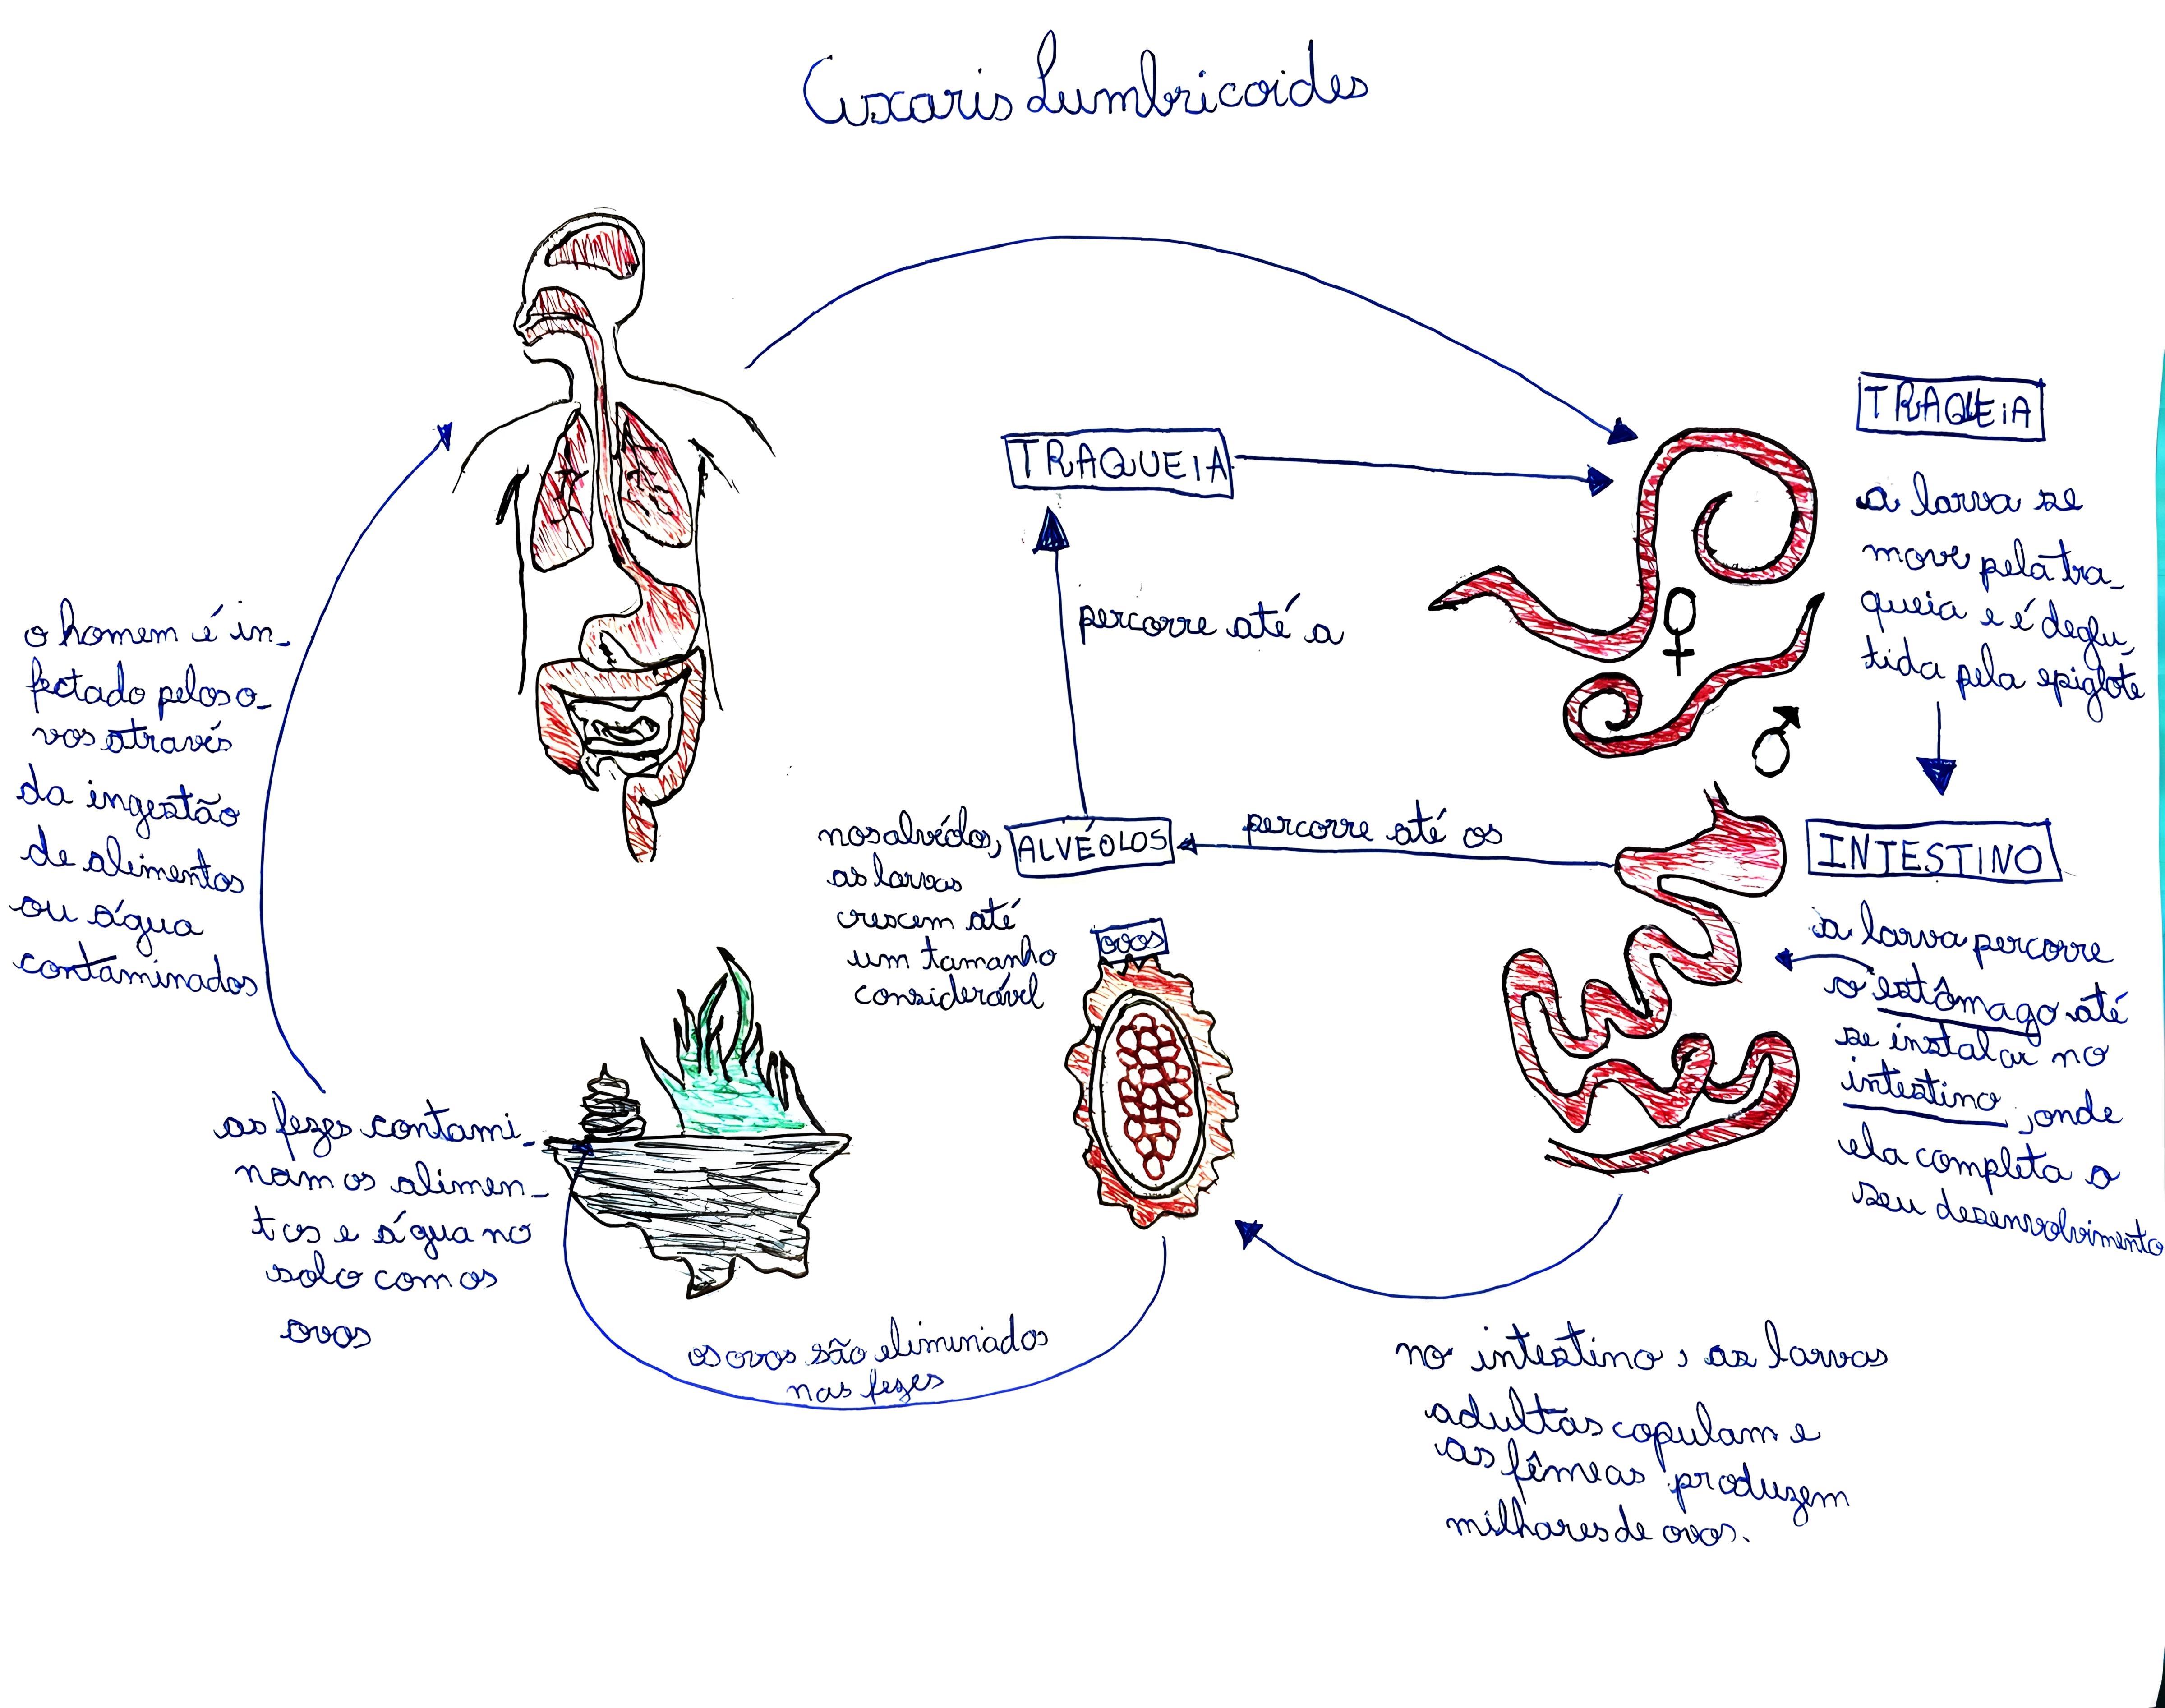 Ascaris Lumbricoides
o homem é in-
fectado pelos o-
vos através
da ingestão
de alimentos
ou água
contaminados
TRAQUEIA
percorre até a
TRAQUEIA
a larva se
move pela tra-
queia e é deglu-
tida pela epiglote
nos alvéolos,
as larvas
crescem até
um tamanho
considerável
ALVÉOLOS
percorre até os
INTESTINO
a larva percorre
o estômago até
se instalar no
intestino, onde
ela completa o
seu desenvolvimento
OVOS
as fezes contami-
nam os alimen-
tos e água no
solo com os
ovos
os ovos são eliminados
nas fezes
no intestino, as larvas
adultas copulam e
as fêmeas produzem
milhares de ovos.